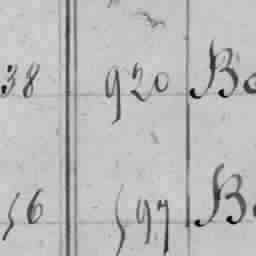 38 920 Be
56 597 Be